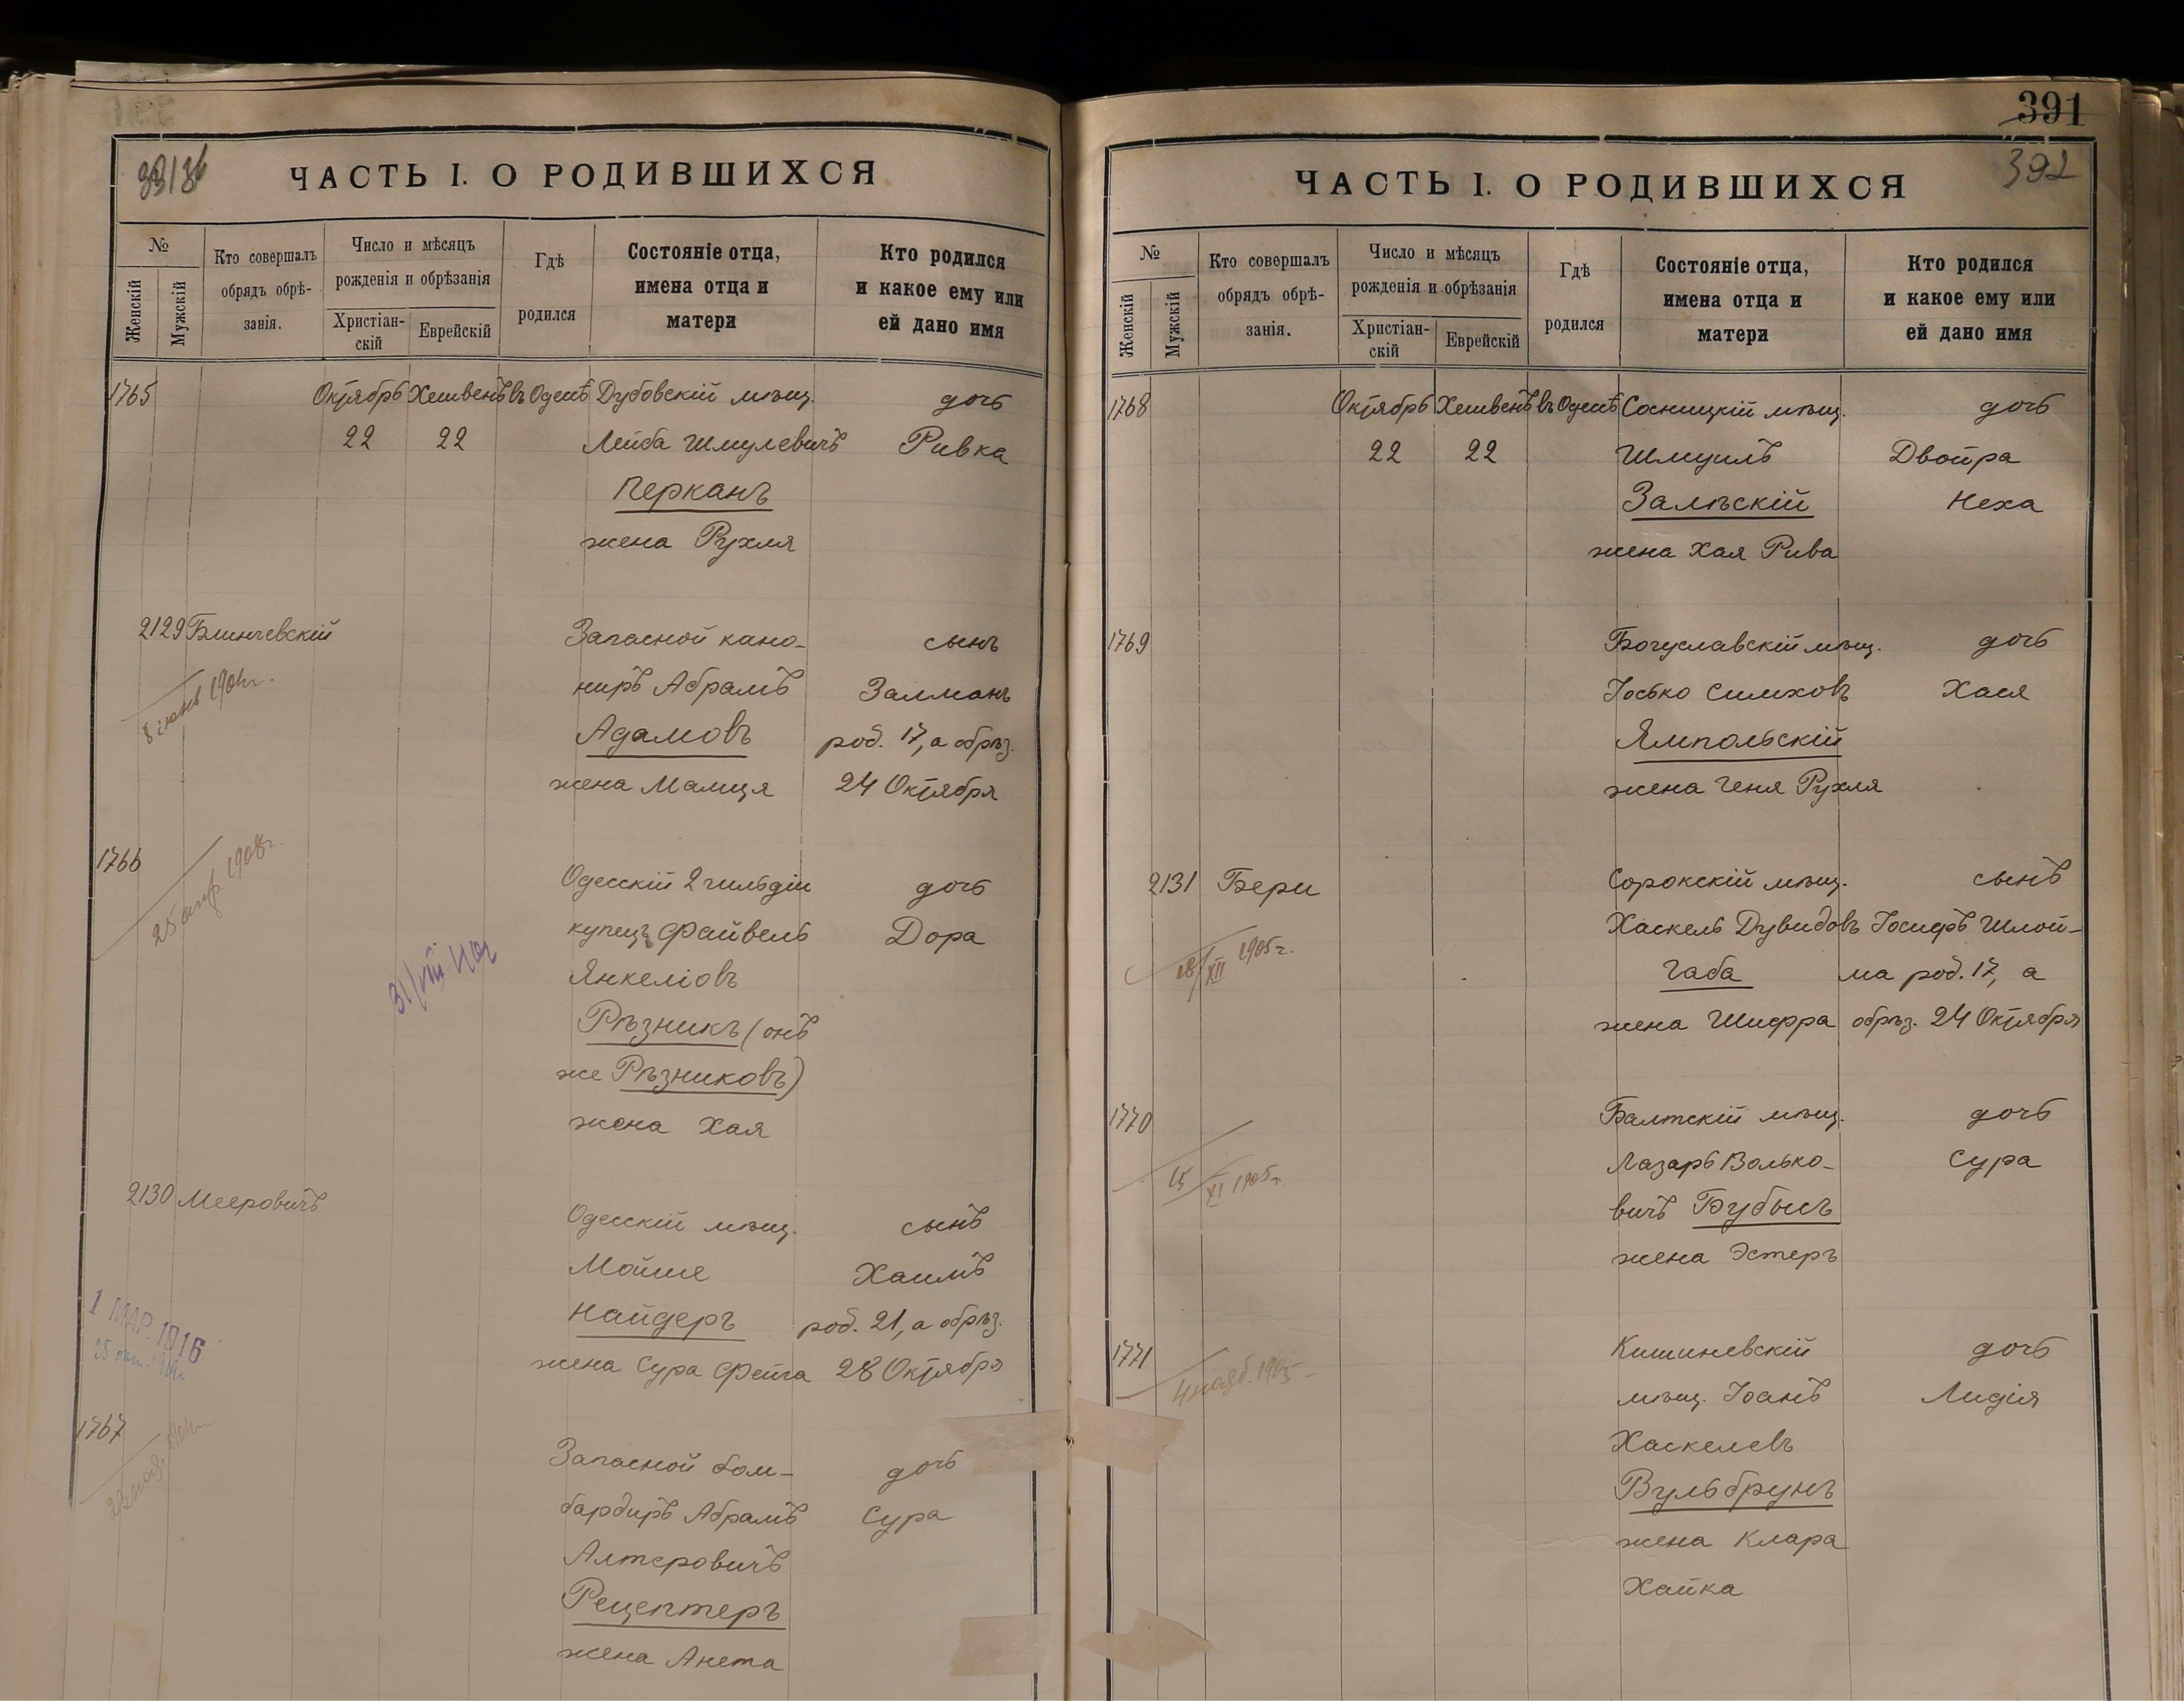 ЧАСТЬ I. О РОДИВШИХСЯ
№
Женскій
Мужскій
Кто совершалъ
обрядъ обрѣ-
занія.
Число и мѣсяцъ
рожденія и обрѣзанія
Христіан-
скій
Еврейскій
Гдѣ
родился
Состояніе отца,
имена отца и
матери
Кто родился
и какое ему или
ей дано имя
1765 Октябрь Хешвенъ въ Одессѣ Дубовскій мѣщ. дочь
22 22 Лейба Шмулевичъ Ривка
Перканъ
жена Рухля
2129 Блинчевскій Запасной кано- сынъ
ниръ Абрамъ Залманъ
Адамовъ род. 17, а обрѣз.
жена Малця 24 Октября
1766 Одесскій 2 гильдіи дочь
25 апр. 1908г.
купецъ Файвель Дора
Янкеліовъ
Рѣзникъ (онъ
же Рѣзниковъ)
жена Хая
2130 Мееровичъ Одесскій мѣщ. сынъ
Мойше Хаимъ
Найдеръ род. 21, а обрѣз.
1 МАР. 1916
жена Сура Фейга 28 Октября
1767 Запасной бом- дочь
бардиръ Абрамъ Сура
Алтеровичъ
Рецептеръ
жена Анета
391
392
ЧАСТЬ I. О РОДИВШИХСЯ
№
Женскій
Мужскій
Кто совершалъ
обрядъ обрѣ-
занія.
Число и мѣсяцъ
рожденія и обрѣзанія
Христіан-
скій
Еврейскій
Гдѣ
родился
Состояніе отца,
имена отца и
матери
Кто родился
и какое ему или
ей дано имя
1768 Октябрь Хешвенъ въ Одессѣ Сосницкій мѣщ. дочь
22 22 Шмуилъ Двойра
Залѣскій Неха
жена Хая Рива
1769 Богуславскій мѣщ. дочь
Іосько Симховъ Хася
Ямпольскій
жена Геня Рухля
2131 Бери Сорокскій мѣщ. сынъ
Хаскель Дувидовъ Іосифъ Шлой-
18/XII 1905г.
Габа ма род. 17, а
жена Шифра обрѣз. 24 Октября
1770 Балтскій мѣщ. дочь
Лазарь Волько- Сура
15/XI 1905г.
вичъ Бубысъ
жена Эстеръ
1771 Кишиневскій дочь
4 нояб. 1905
мѣщ. Іоанъ Лидія
Хаскелевъ
Вульбрунъ
жена Клара
Хайка